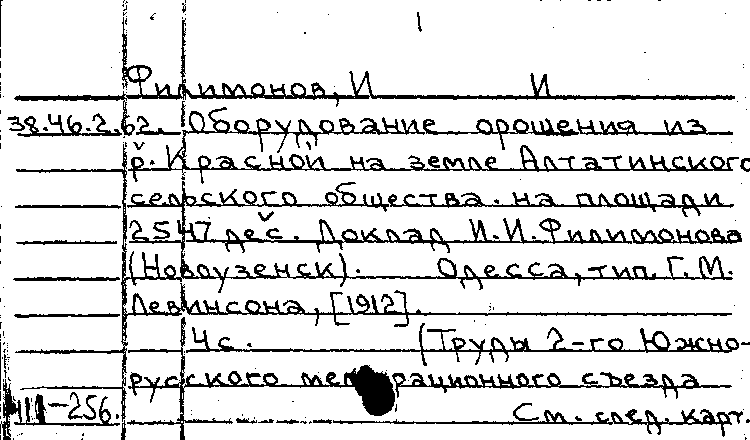 Филимонов, И И
38.46.2.62. Оборудование орошения из
р. Красной на земле Алтатинского
сельского общества. на площади
2547 дес. Доклад И.И. Филимонова
(Новоузенск). Одесса, тип. Г.М.
Левинсона, [1912].
4 с. (Труды 2-го Южно-
русского мелиорационного съезда
-256. См. след. карт.